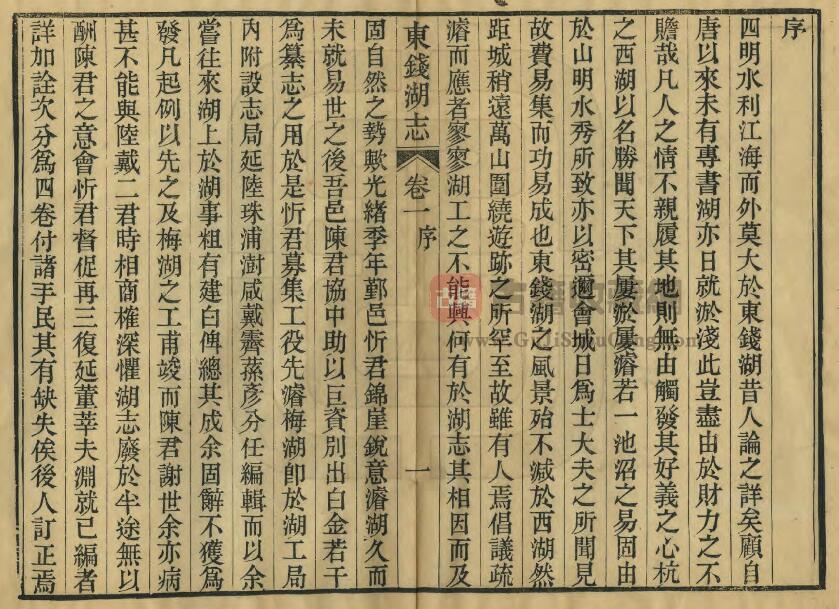 序
四明水利江海而外莫大於東錢湖昔人論之詳矣顧自
唐以來未有專書湖亦日就淤淺此豈盡由於財力之不
贍哉凡人之情不親履其地則無由觸發其好義之心杭
之西湖以名勝聞天下其屢淤屢濬若一池沼之易固由
於山明水秀所致亦以密邇會城日為士大夫之所聞見
故費易集而功易成也東錢湖之風景殆不減於西湖然
距城稍遠萬山圍繞遊跡之所罕至故雖有人焉倡議疏
濬而應者寥寥湖工之不能興何有於湖志其相因而及
東錢湖志 卷一 序 一
固自然之勢歟光緒季年鄞邑忻君錦崖銳意濬湖久而
未就易世之後吾邑陳君協中助以巨資別出白金若干
為纂志之用於是忻君募集工役先濬梅湖卽於湖工局
內附設志局延陸珠浦澍咸戴霽蓀彥分任編輯而以余
嘗往來湖上於湖事粗有建白俾總其成余固辭不獲為
發凡起例以先之及梅湖之工甫竣而陳君謝世余亦病
甚不能與陸戴二君時相商榷深懼湖志廢於半途無以
酬陳君之意會忻君督促再三復延董莘夫淵就已編者
詳加詮次分為四卷付諸手民其有缺失俟後人訂正焉
古籍收藏網
www.GuJiShouCang.com